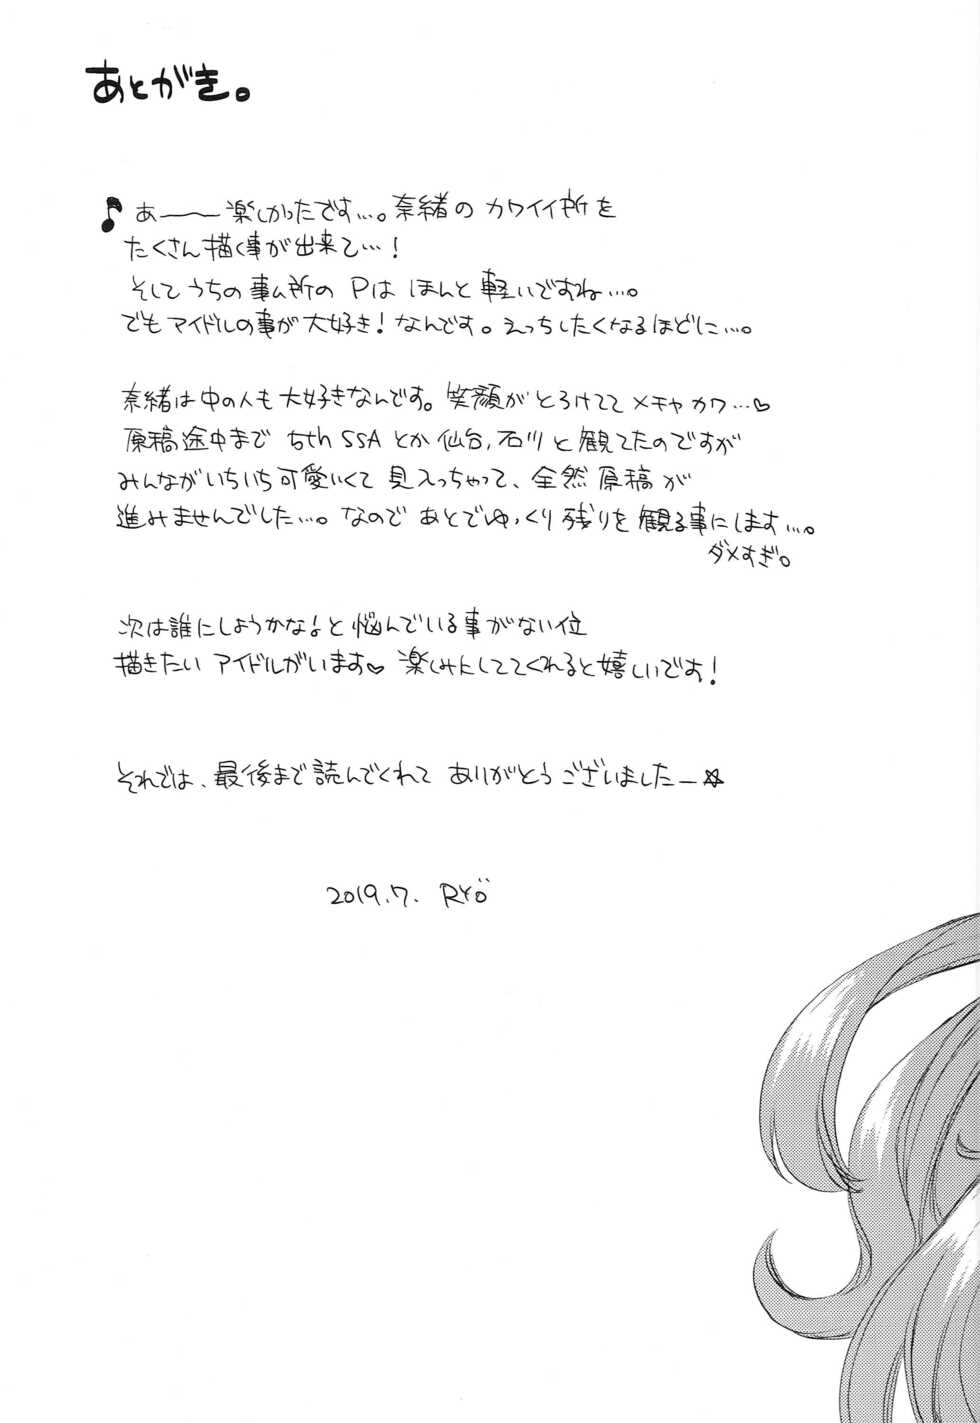 あとがき。
♪ あー〜楽しかったです…。奈緒のカワイイ所を
たくさん描く事が出来て…!
そしてうちの事ム所のPはほんと軽いですね…。
でもアイドルの事が大好き!なんです。えっちしたくなるほどに…。
奈緒は中の人も大好きなんです。笑顔がとろけててメチャカワ…♡
原稿途中まで 5th SSA とか仙台,石川と観てたのですが
みんながいちいち可愛いくて見入っちゃって、全然原稿が
進みませんでした…。なのであとでゆっくり残りを観る事にします…。
ダメすぎ。
次は誰にしようかな♪と悩んでいる事がない位
描きたいアイドルがいます♡ 楽しみにしててくれると嬉しいです!
それでは、最後まで読んでくれてありがとうございましたー☆
2019.7. Ryö